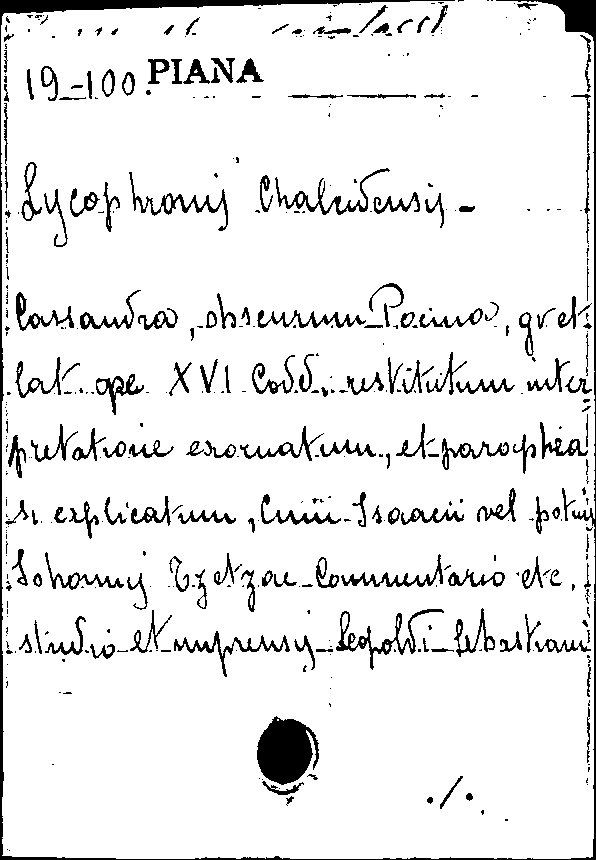 19-100. PIANA
Lycophronis Chalcidensis -
Cassandra, obscurum Poema, gr et
lat. ope XVI Codd. restitutum inter
pretatione exornatum, et parophea
si explicatum, Cum Isaacii vel potius
Iohannis Tzetzae Commentario etc.
studio et impensis Leopoldi Sebastiani
./.